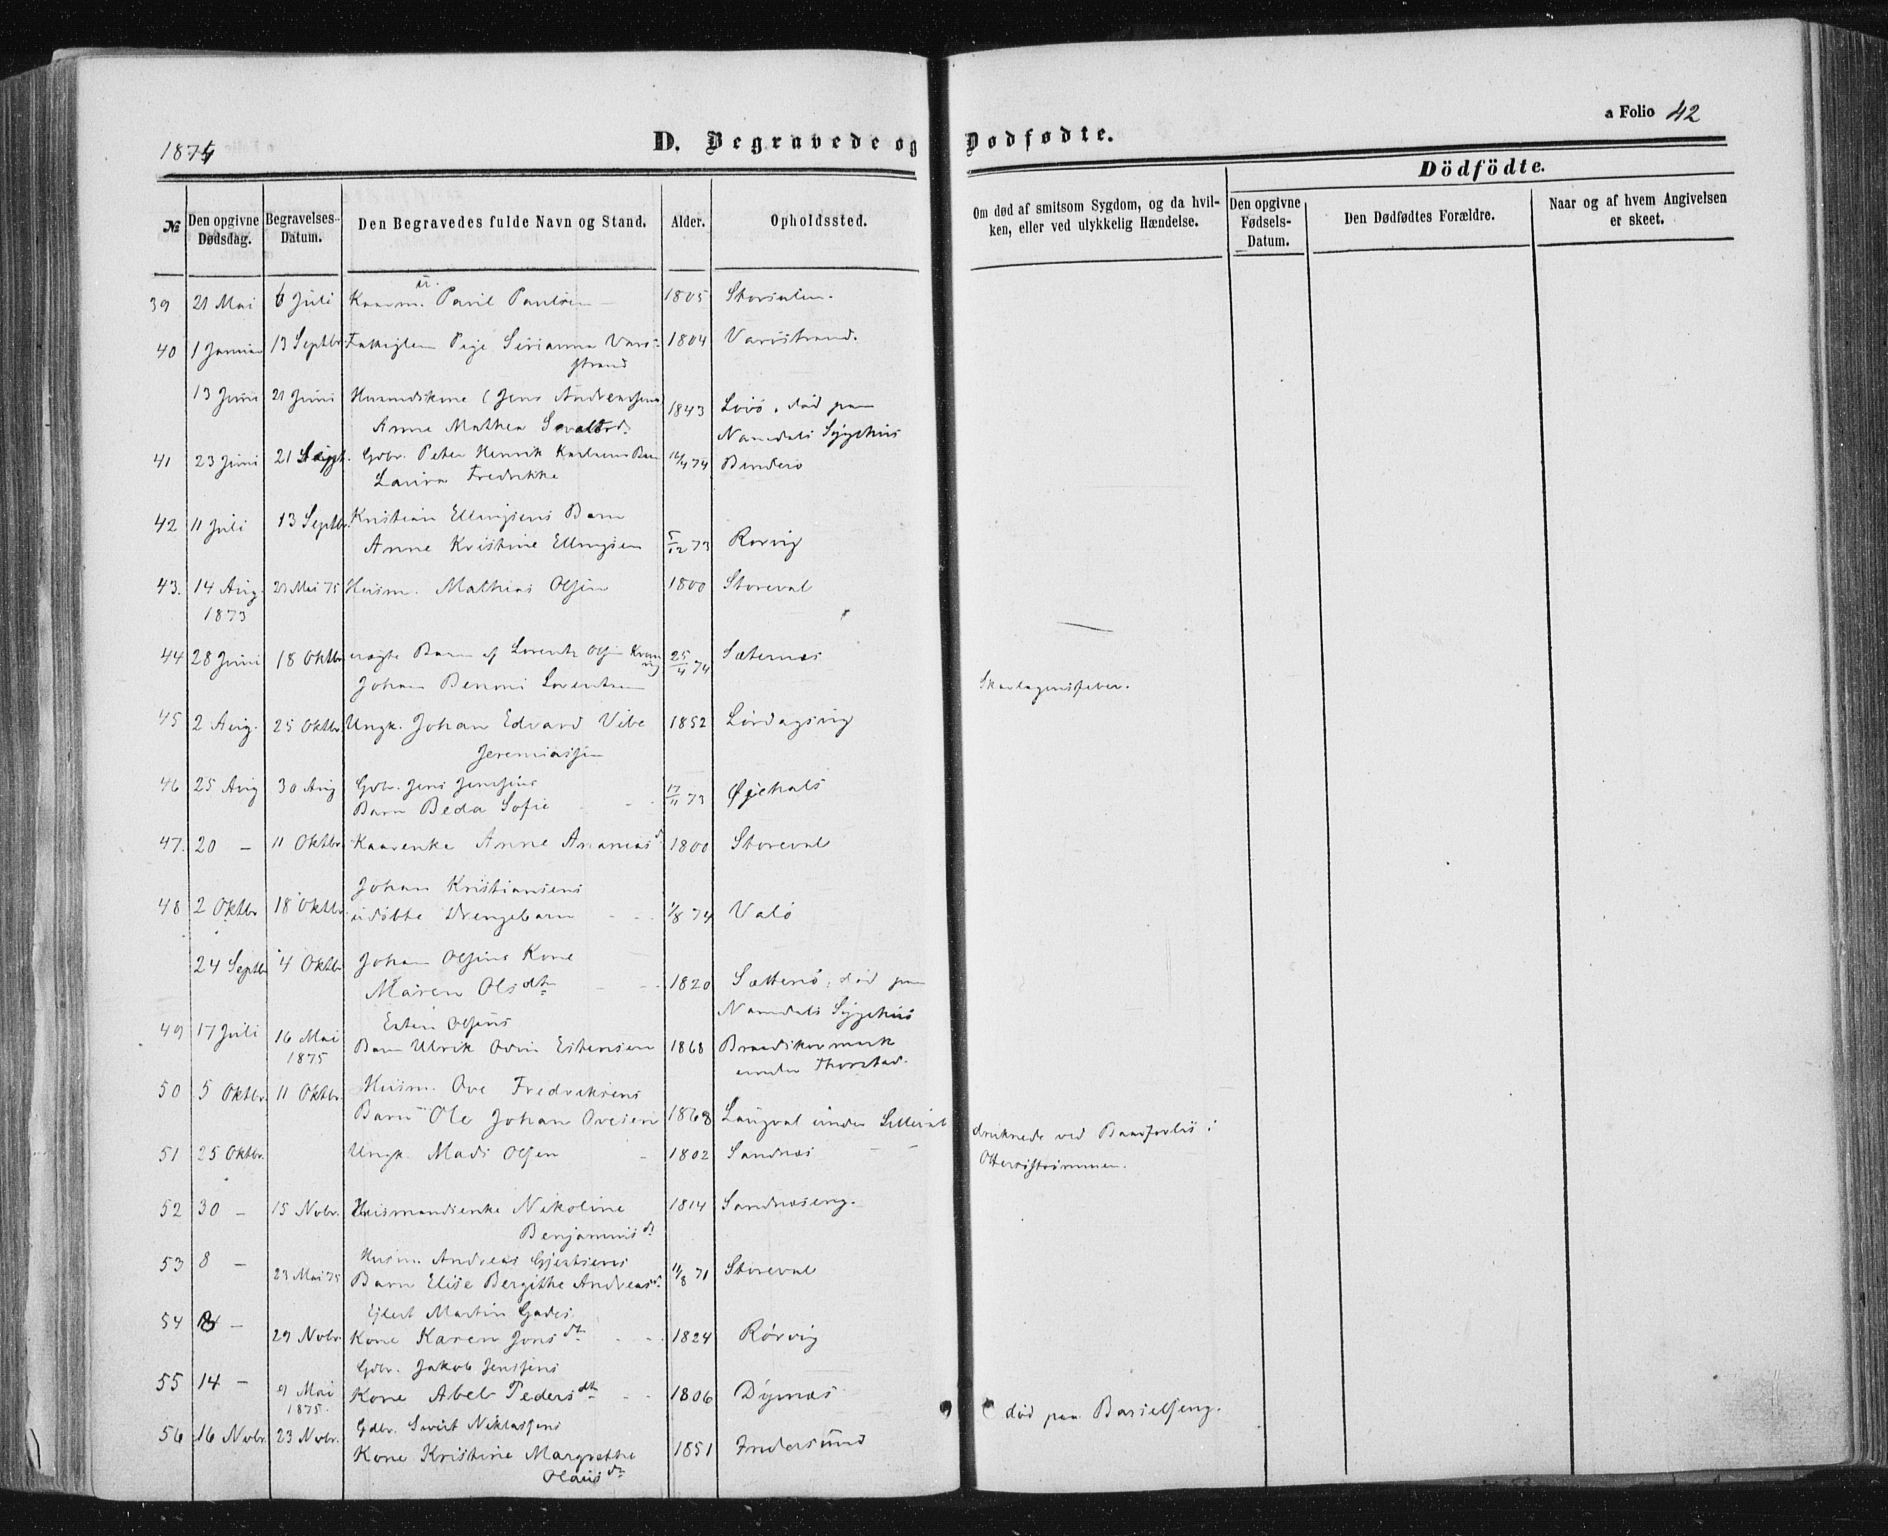 a Folio 42
1874
D. Begravede og Dødfødte.
Dödfödte.
№ Den opgivne Dødsdag. Begravelses-Datum. Den Begravedes fulde Navn og Stand. Alder. Opholdssted. Om død af smitsom Sygdom, og da hvilken, eller ved ulykkelig Hændelse. Den opgivne Fødsels-Datum. Den Dødfødtes Forældre. Naar og af hvem Angivelsen er skeet.
39 21 Mai 6 Juli Paul Paulsen 1805
40 1 Januar 13 Septbr. Pige Serianna Varø-
strand 1804 Varøstrand.
13 Juni 21 Juni (Jens Andreassens
Anne Mathea 1843 Levø, død paa
Namdals Sygehus
41 23 Juni 21 Septb. Gdbr. Peter Henrik Karlsens Barn
Laura Fredrikke 16/4 74 Binderø
42 11 Juli 13 Septbr. Kristian Ellingsens Barn
Anne Kristine Ellingsen 5/12 73 Rørvig
43. 14 Aug. 23 Mai 75 Husm. Mathias Olsen 1800 Storeval
1873
44 28 Juni 18 Oktbr. uægte Barn af Lorents Olsen
Johan Benoni Lorentsen 25/4 74 Sæternæs Skarlagensfeber.
45 2 Aug. 25 Oktbr. Ungk. Johan Edvard Vibe
Jeremiassen 1852 Lørdagsvig
46 25 Aug 30 Aug Gdbr. Jens Jensens
Barn Beda Sofie 17/11 73 Øiehals
47. 20 - 11 Oktbr. Kaarenke Anne Ananiasd. 1800 Storeval
48 2 Oktbr. 18 Oktbr. Johan Kristiansens
udøbte Drengebarn 1/8 74 Valø
24 Septbr. 4 Oktbr Johan Olsens Kone
Maren Olsdtr 1820 Sætterø, død paa
Namdals Sygehus
49 17 Juli 16 Mai 1875 Esten Olsens
Barn Ulrik Odin Estensen 1868
under Thorstad.
50 5 Oktbr. 11 Oktbr. Husm. Ove Fredriksens
Barn Ole Johan Ovesen 1868 Langval under druknede ved Baadforlis i
51 25 Oktbr. Ungk. Mads Olsen 1802 Sandnæs
52 30 - 15 Nvbr. Husmandsenke Nikoline
Benjaminsdt 1814 Sandnæseng.
53 8 - 23 Mai 75 Husm. Andreas Gjertsens
Barn Elise Bergithe Andreasd. 11/8 71 Storeval
54 8 - 29 Nvbr. Eilert Martin Gades
Kone Karen Jonsdt 1824 Rørvig
55 14 - 9 Mai 1875. Gdbr. Jakob Jenssens
Kone Abel Pedersdtr 1806 Dynæs
56 16 Nvbr. 23 Nvbr. Gdbr. Sivert Niklassens
Kone Kristine Margrethe
Olausdtr 1851 Indersund død paa Barselseng.